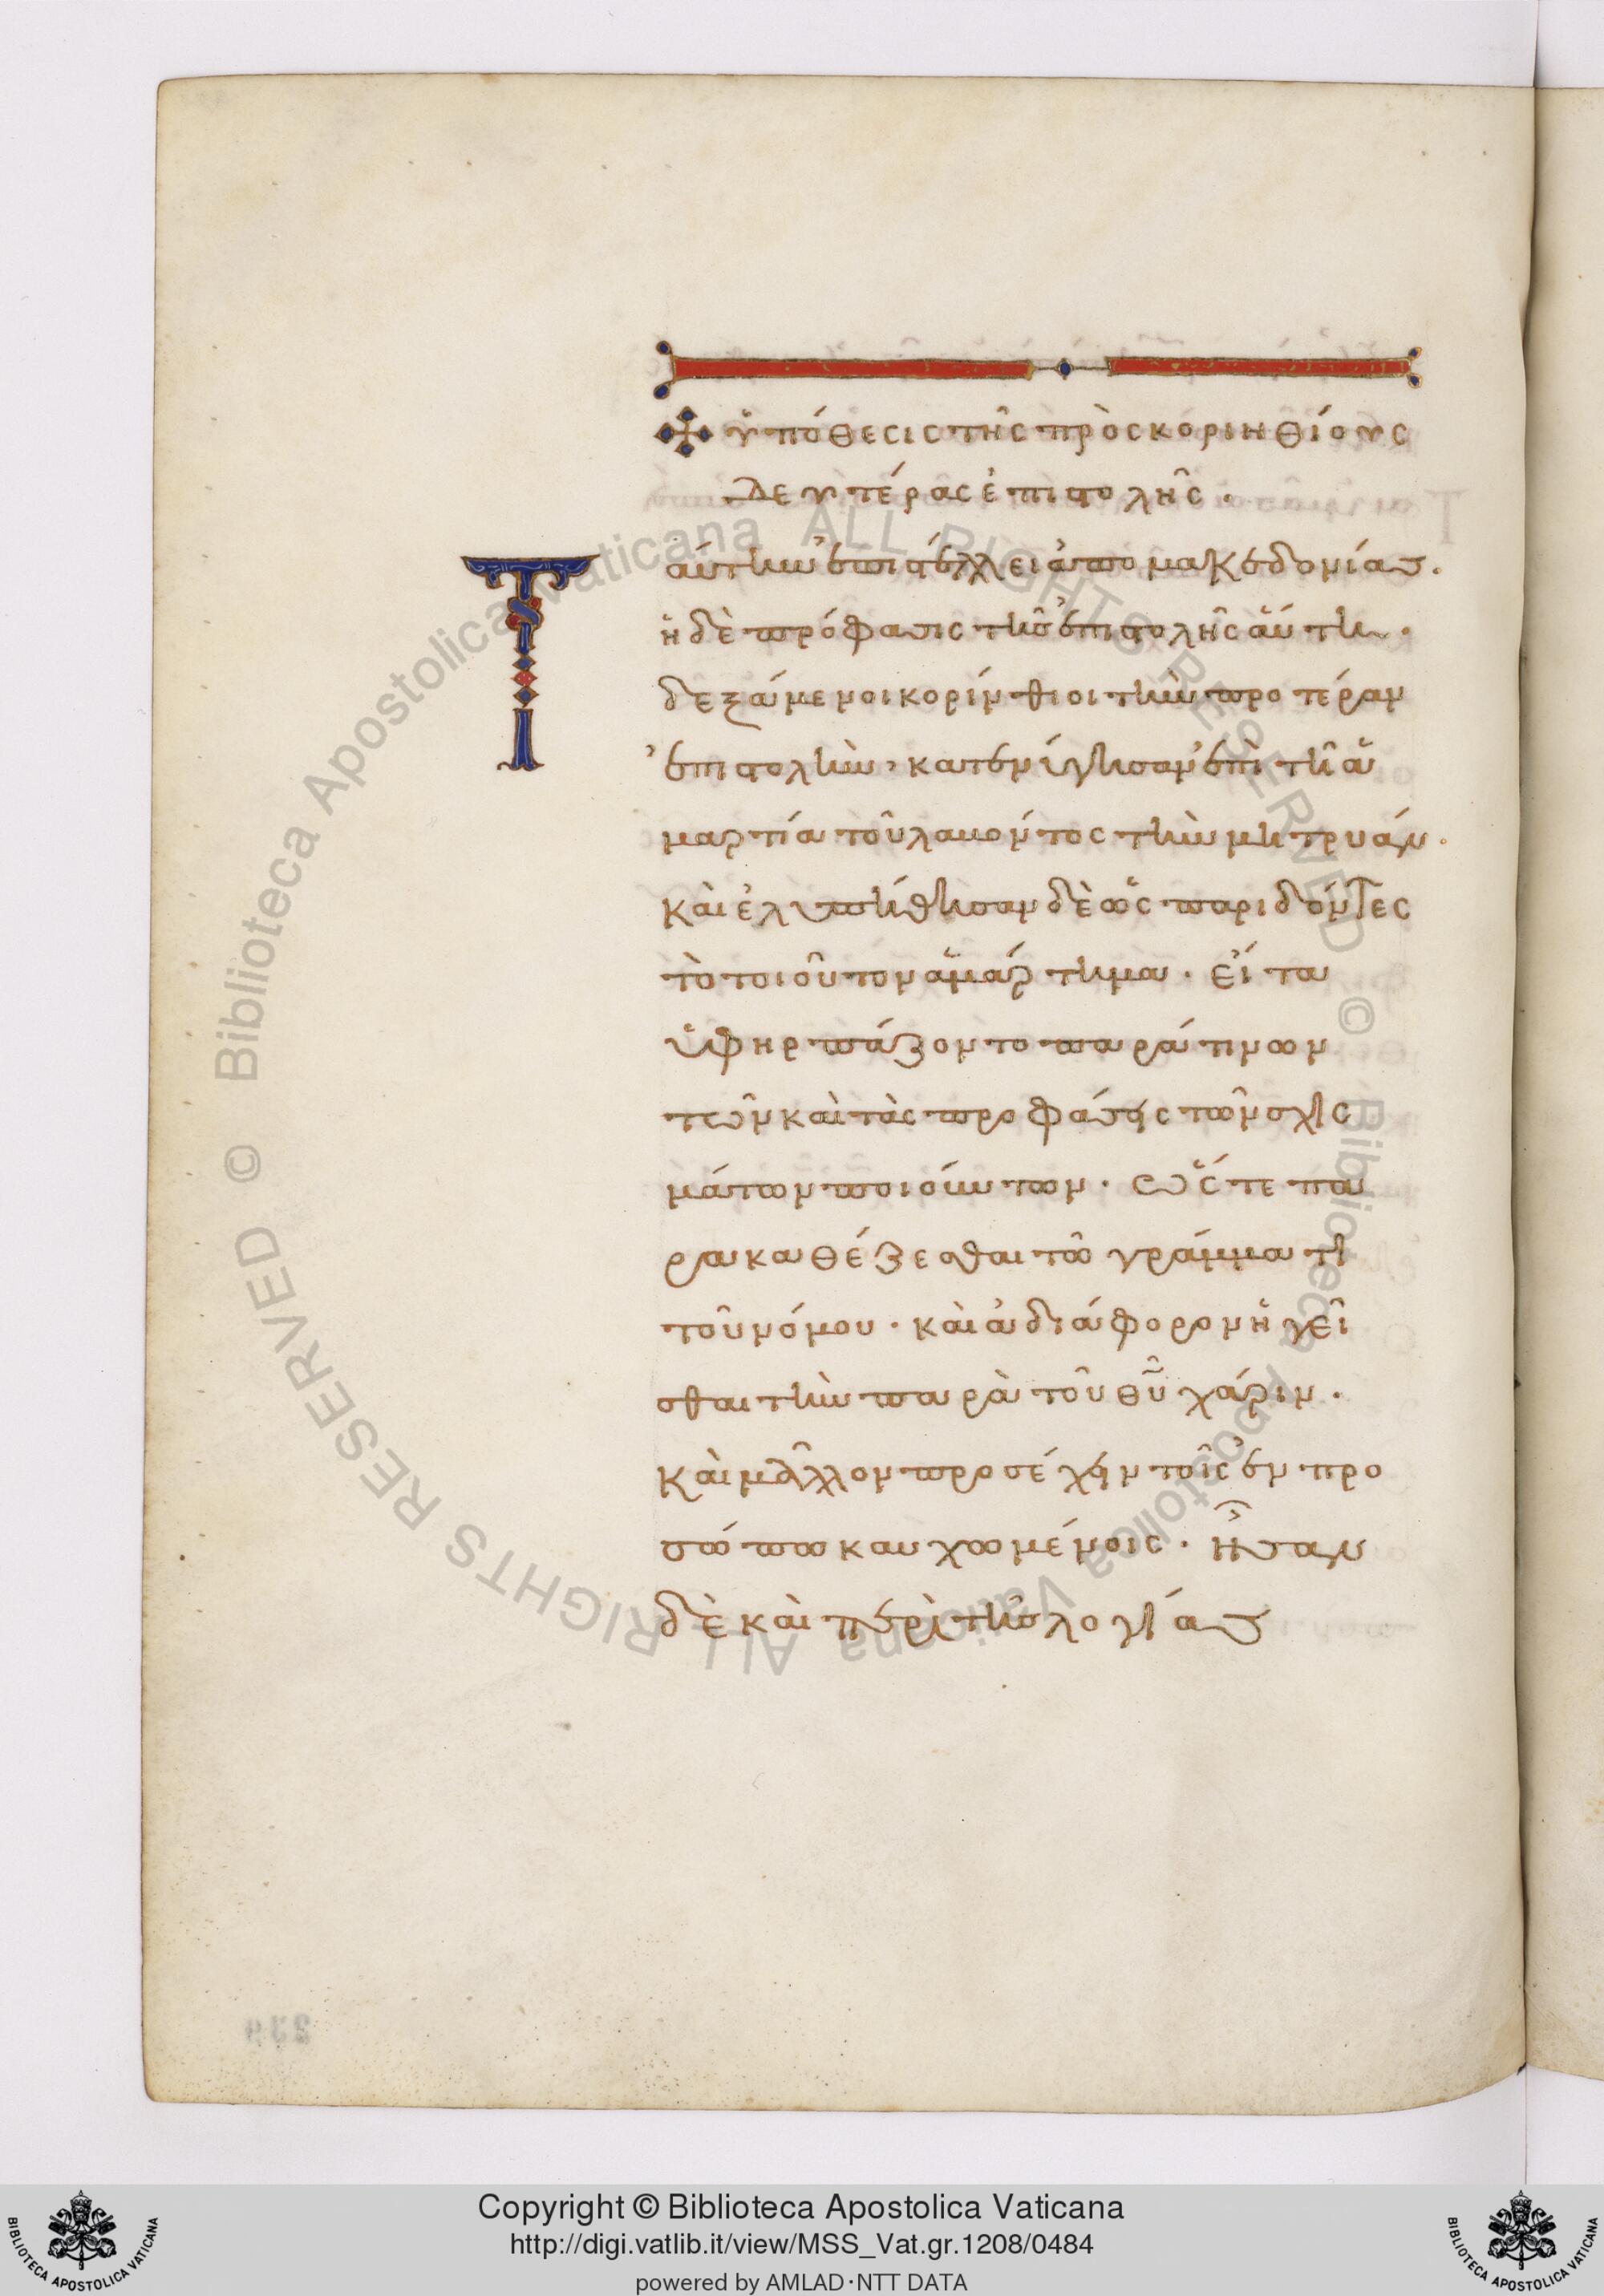 ὑπόθεσις τῆς πρὸς κορινθίους
δευτέρας ἐπιστολῆς.
Ταύτην ἐπιστέλλει ἀπο μακεδονίας.
ἡ δὲ πρόφασις τῆς ἐπιστολῆς αὕτη.
δεξάμενοι κορίνθιοι τὴν προτέραν
ἐπιστολὴν, κατενύγησαν ἐπὶ τῆ ἁ
μαρτία τοῦ λαμόντος τὴν μητρυάν.
καὶ ἐλυπήθησαν δὲ ὡς παριδόντες
τὸ τοιοῦτον ἁμάρτημα. εἶτα
ὑφηρπάζοντο παρά τινων
τῶν καὶ τὰς προφάσεις τῶν σχις
μάτων ποιούντων. ὥστε πα
ρακαθέζεσθαι τῶ γράμματι
τοῦ νόμου. καὶ ἀδιάφορον ἡγεῖ
σθαι τὴν παρὰ τοῦ θῦ χάριν.
καὶ μᾶλλον προσέχειν τοῖς ἐν προ
σώπω καυχωμένοις. ἦσαν
δὲ καὶ περὶ τῆς λογίας
Copyright © Biblioteca Apostolica Vaticana
http://digi.vatlib.it/view/MSS_Vat.gr.1208/0484
powered by AMLAD·NTT DATA
BIBLIOTECA APOSTOLICA VATICANA
BIBLIOTECA APOSTOLICA VATICANA
© Biblioteca Apostolica Vaticana ALL RIGHTS RESERVED © Biblioteca Apostolica Vaticana ALL RIGHTS RESERVED